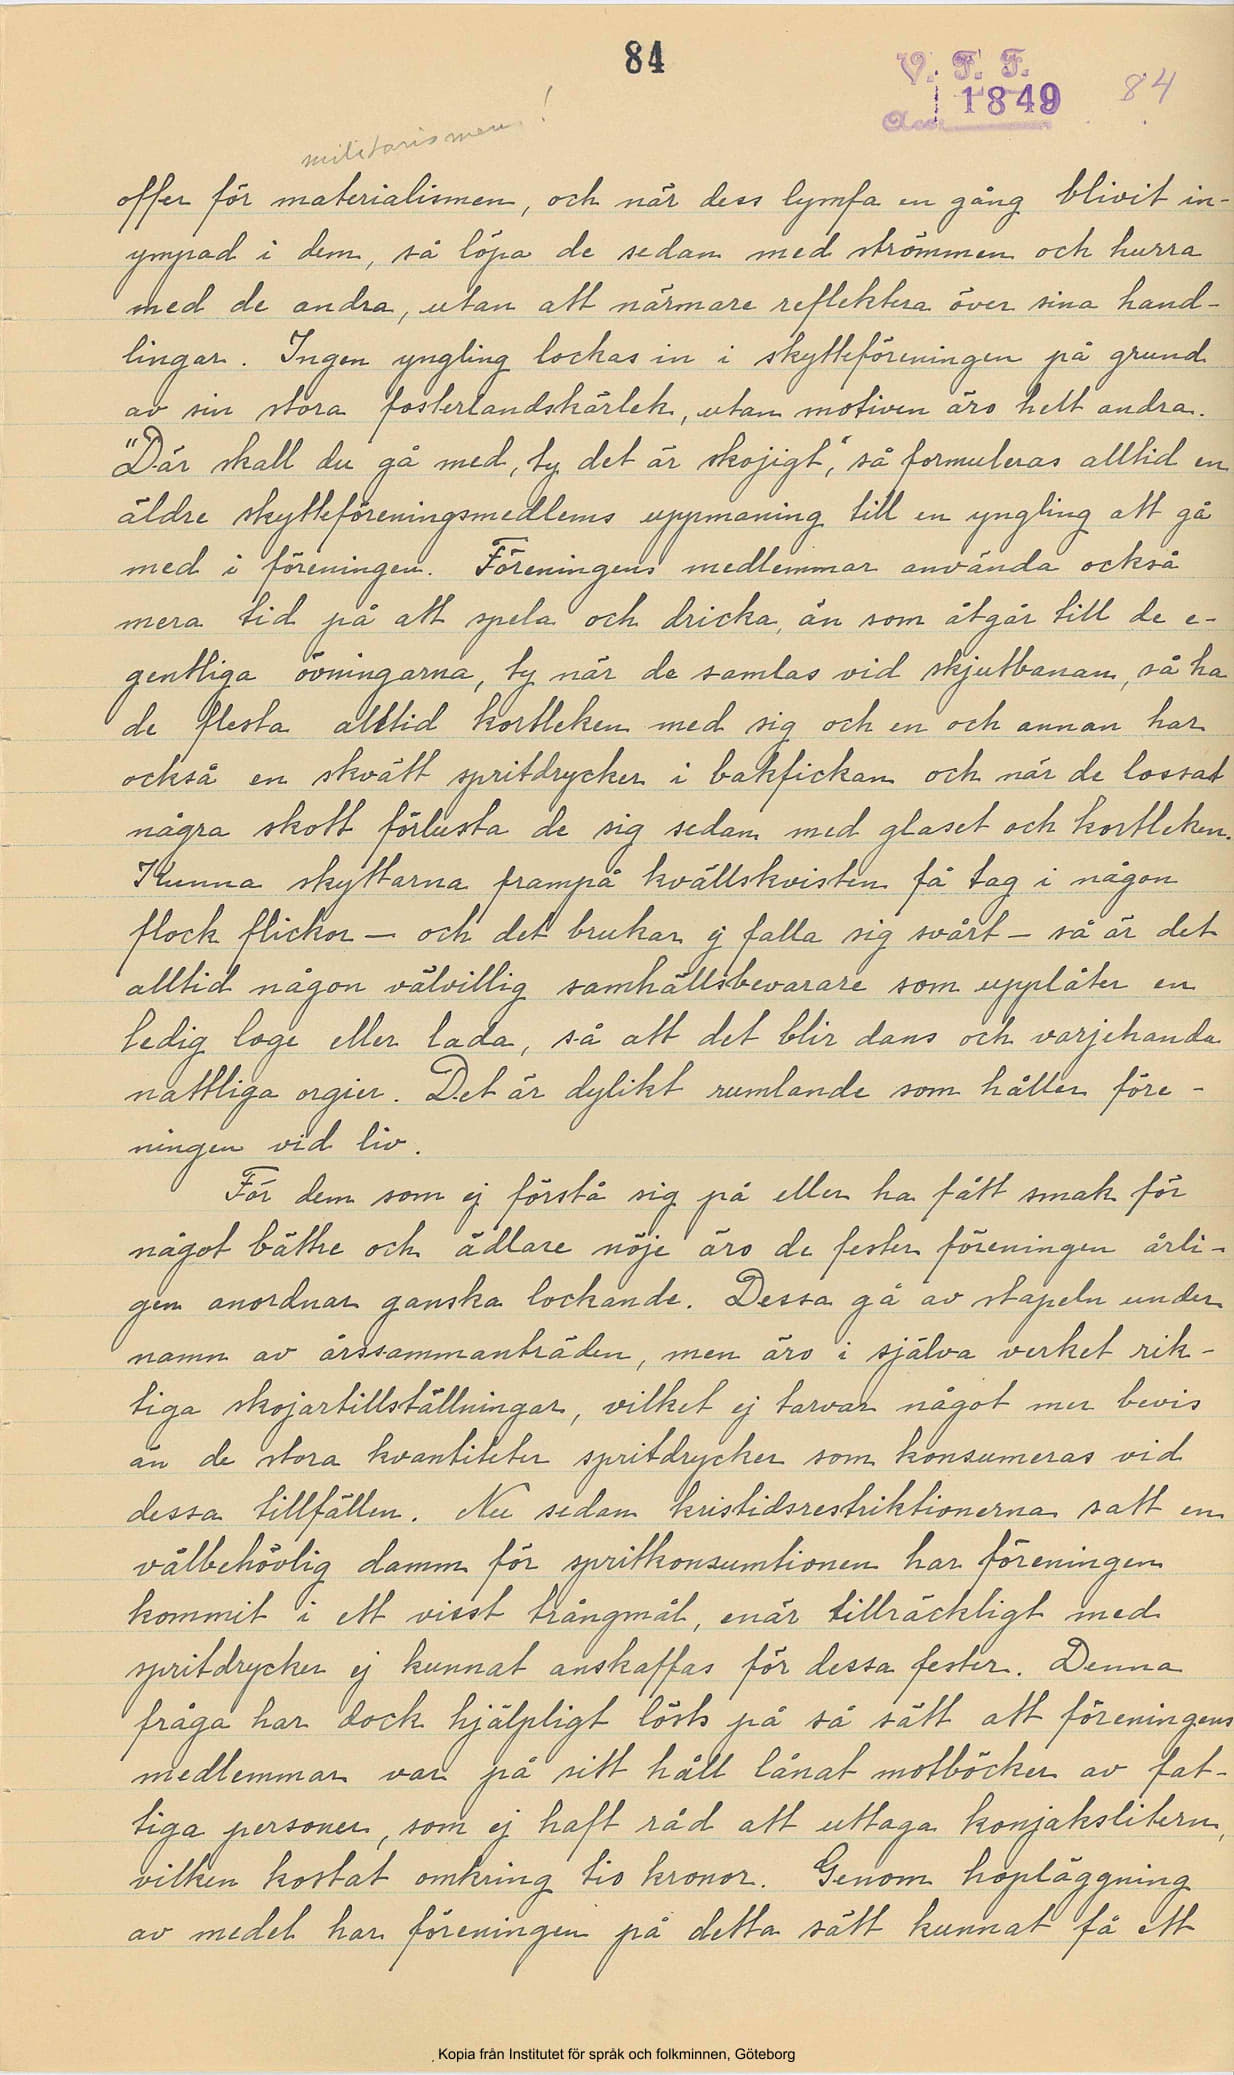 84
V. F. F.
1849
84
militarismen!
offer för materialismen, och när dess lymfa en gång blivit in-
ympad i dem, så löpa de sedan med strömmen och hurra
med de andra, utan att närmare reflektera över sina hand-
lingar. Ingen yngling lockas in i skytteföreningen på grund
av sin stora fosterlandskärlek, utan motiven äro helt andra.
"Där skall du gå med, ty det är skojigt," så formuleras alltid en
äldre skytteföreningsmedlems uppmaning till en yngling att gå
med i föreningen. Föreningens medlemmar använda också
mera tid på att spela och dricka, än som åtgår till de e-
gentliga övningarna, ty när de samlas vid skjutbanan, så ha
de flesta alltid kortleken med sig och en och annan har
också en skvätt spritdrycker i bakfickan och när de lossat
några skott förlusta de sig sedan med glaset och kortleken.
Kunna skyttarna frampå kvällskvisten få tag i någon
flock flickor — och det brukar ej falla sig svårt — så är det
alltid någon välvillig samhällsbevarare som upplåter en
ledig loge eller lada, så att det blir dans och varjehanda
nattliga orgier. Det är dylikt rumlande som håller före-
ningen vid liv.
För dem som ej förstå sig på eller ha fått smak för
något bättre och ädlare nöje äro de fester föreningen årli-
gen anordnar ganska lockande. Dessa gå av stapeln under
namn av årssammanträden, men äro i själva verket rik-
tiga skojartillställningar, vilket ej tarvar något mer bevis
än de stora kvantiteter spritdrycker som konsumeras vid
dessa tillfällen. Nu sedan kristidsrestriktionerna satt en
välbehövlig damm för spritkonsumtionen har föreningen
kommit i ett visst trångmål, enär tillräckligt med
spritdrycker ej kunnat anskaffas för dessa fester. Denna
fråga har dock hjälpligt lösts på så sätt att föreningens
medlemmar var på sitt håll lånat motböcker av fat-
tiga personer, som ej haft råd att uttaga konjakslitern,
vilken kostat omkring tio kronor. Genom hopläggning
av medel har föreningen på detta sätt kunnat få ett
Kopia från Institutet för språk och folkminnen, Göteborg